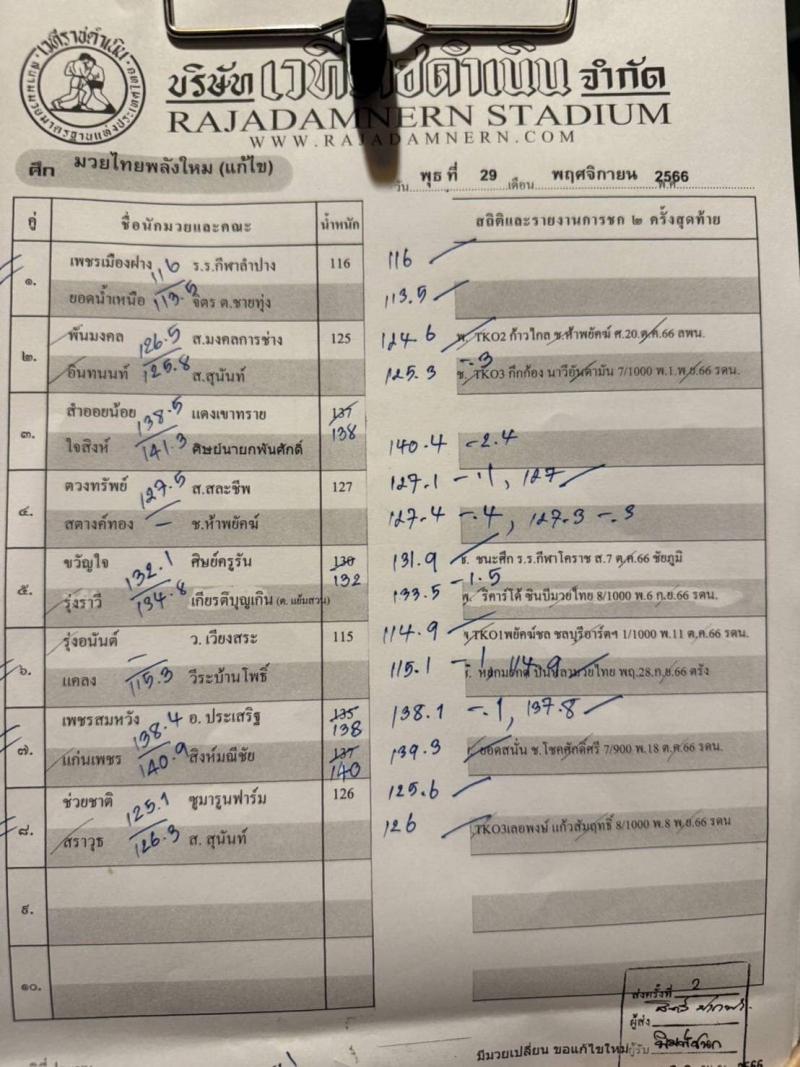 เวทีราชดำเนิน
บริษัท เวทีราชดำเนิน จำกัด
RAJADAMNERN STADIUM
WWW.RAJADAMNERN.COM
ศึก มวยไทยพลังใหม่ (แก้ไข) วัน พุธ ที่ 29 เดือน พฤศจิกายน พ.ศ. 2566
คู่ ชื่อนักมวยและคณะ น้ำหนัก สถิติและรายงานการชก ๒ ครั้งสุดท้าย
๑. เพชรเมืองฝาง 116 ร.ร.กีฬาลำปาง 116 116
ยอดน้ำเหนือ 113.5 จิตร ต.ชายทุ่ง 113.5
๒. พันมงคล 126.5 ส.มงคลการช่าง 125 124.6 พ. TKO2 ก้าวไกล ช.ห้าพยัคฆ์ ศ.20.ต.ค.66 ลพน.
อินทนนท์ 125.8 ส.สุนันท์ 125.3 -.3 ช. TKO3 กึกก้อง นาวีอันดามัน 7/1000 พ.1.พ.ย.66 รดน.
๓. สำออยน้อย 138.5 แดงเขาทราย 137 138
ใจสิงห์ 141.3 ศิษย์นายกพันศักดิ์ 140.4 -2.4
๔. ดวงทรัพย์ 127.5 ส.สละชีพ 127 127.1 -.1, 127
สตางค์ทอง - ช.ห้าพยัคฆ์ 127.4 -.4, 127.3 -.3
๕. ขวัญใจ 132.1 ศิษย์ครูรัน 130 132 131.9 ช. ชนะศึก ร.ร.กีฬาโคราช ส.7 ต.ค.66 ชัยภูมิ
รุ่งราวี 134.8 เกียรติบุญเกิน (ด. แย้มสวน) 133.5 -1.5 พ. ริคาร์โด้ ซินบีมวยไทย 8/1000 พ.6 ก.ย.66 รดน.
๖. รุ่งอนันต์ - ว. เวียงสระ 115 114.9 TKO1พยัคฆ์ชล ชลบุรีอาร์ตฯ 1/1000 พ.11 ต.ค.66 รดน.
แคลง 115.3 วีระบ้านโพธิ์ 115.1 -.1, 114.9 มวยไทย พฤ.28.ก.ย.66 ตรัง
๗. เพชรสมหวัง 138.4 อ. ประเสริฐ 135 138 138.1 -.1, 137.8
แก่นเพชร 140.9 สิงห์มณีชัย 137 140 139.3 ยอดสนั่น ช.โชคศักดิ์ศรี 7/900 พ.18 ต.ค.66 รดน.
๘. ช่วยชาติ 125.1 ซูมารูนฟาร์ม 126 125.6
สราวุธ 126.3 ส. สุนันท์ 126 TKO3เลอพงษ์ แก้วสัมฤทธิ์ 8/1000 พ.8 พ.ย.66 รดน
๙.
๑๐.
ส่งครั้งที่ 2
ผู้ส่ง
ผู้รับ
มีมวยเปลี่ยน ขอแก้ไขใหม่
2566